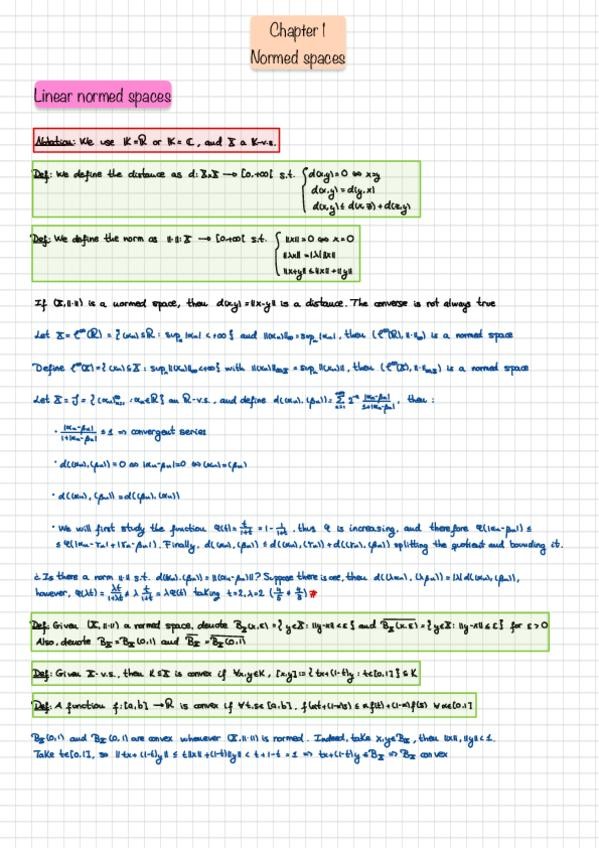 Chapter 1
Normed spaces
Linear normed spaces
Notation: We use K=ℝ or K=ℂ, and X a K-v.s.
Def: We define the distance as d: X×X → [0,+∞[ s.t. { d(x,y)=0 ⇔ x=y
d(x,y)=d(y,x)
d(x,y)≤d(x,z)+d(z,y)
Def: We define the norm as ‖·‖: X → [0,+∞[ s.t. { ‖x‖=0 ⇔ x=0
‖λx‖=|λ|‖x‖
‖x+y‖≤‖x‖+‖y‖
If (X,‖·‖) is a normed space, then d(x,y)=‖x-y‖ is a distance. The converse is not always true
Let X=ℓ^∞(ℝ)={(xₙ)⊆ℝ: supₙ|xₙ|<+∞} and ‖(xₙ)‖_∞=supₙ|xₙ|, then (ℓ^∞(ℝ),‖·‖_∞) is a normed space
Define ℓ^∞(X)={(xₙ)⊆X: supₙ‖(xₙ)‖<+∞} with supₙ‖(xₙ)‖, then is a normed space
Let X= = {(αₙ)ₙ₌₁^∞: αₙ∈ℝ} an ℝ-v.s., and define d((αₙ),(βₙ))=∑ₙ₌₁^∞ 2⁻ⁿ |αₙ-βₙ|/(1+|αₙ-βₙ|), then:
· |αₙ-βₙ|/(1+|αₙ-βₙ|) ≤ 1 ⇒ convergent series
· d((αₙ),(βₙ))=0 ⇔ |αₙ-βₙ|=0 ⇔ (αₙ)=(βₙ)
· d((αₙ),(βₙ))=d((βₙ),(αₙ))
· We will first study the function φ(t)=t/(1+t)=1-1/(1+t), thus φ is increasing, and therefore φ(|αₙ-βₙ|) ≤
≤ φ(|αₙ-γₙ|+|γₙ-βₙ|). Finally, d((αₙ),(βₙ)) ≤ d((αₙ),(γₙ))+d((γₙ),(βₙ)) splitting the quotient and bounding it.
¿Is there a norm ‖·‖ s.t. d((αₙ),(βₙ))=‖(αₙ-βₙ)‖? Suppose there is one, then d((λαₙ),(λβₙ))=|λ|d((αₙ),(βₙ)),
however, φ(λt)=λt/(1+λt)≠λ t/(1+t)=λφ(t) taking t=2, λ=2 (4/5 ≠ 4/3) #
Def: Given (X,‖·‖) a normed space, denote B_X(x,ε)={y∈X: ‖y-x‖<ε} and B̅_X(x,ε)={y∈X: ‖y-x‖≤ε} for ε>0
Also, denote B_X=B_X(0,1) and B̅_X=B̅_X(0,1)
Def: Given X-v.s., then K⊆X is convex if ∀x,y∈K, [x,y]:={tx+(1-t)y : t∈[0,1]}⊆K
Def: A function f:[a,b]→ℝ is convex if ∀t,s∈[a,b], f(αt+(1-α)s) ≤ αf(t)+(1-α)f(s) ∀α∈[0,1]
B_X(0,1) and B̅_X(0,1) are convex whenever (X,‖·‖) is normed. Indeed, take x,y∈B_X, then ‖x‖,‖y‖<1.
Take t∈[0,1], so ‖tx+(1-t)y‖ ≤ t‖x‖+(1-t)‖y‖ < t+1-t = 1 ⇒ tx+(1-t)y∈B_X ⇒ B_X convex